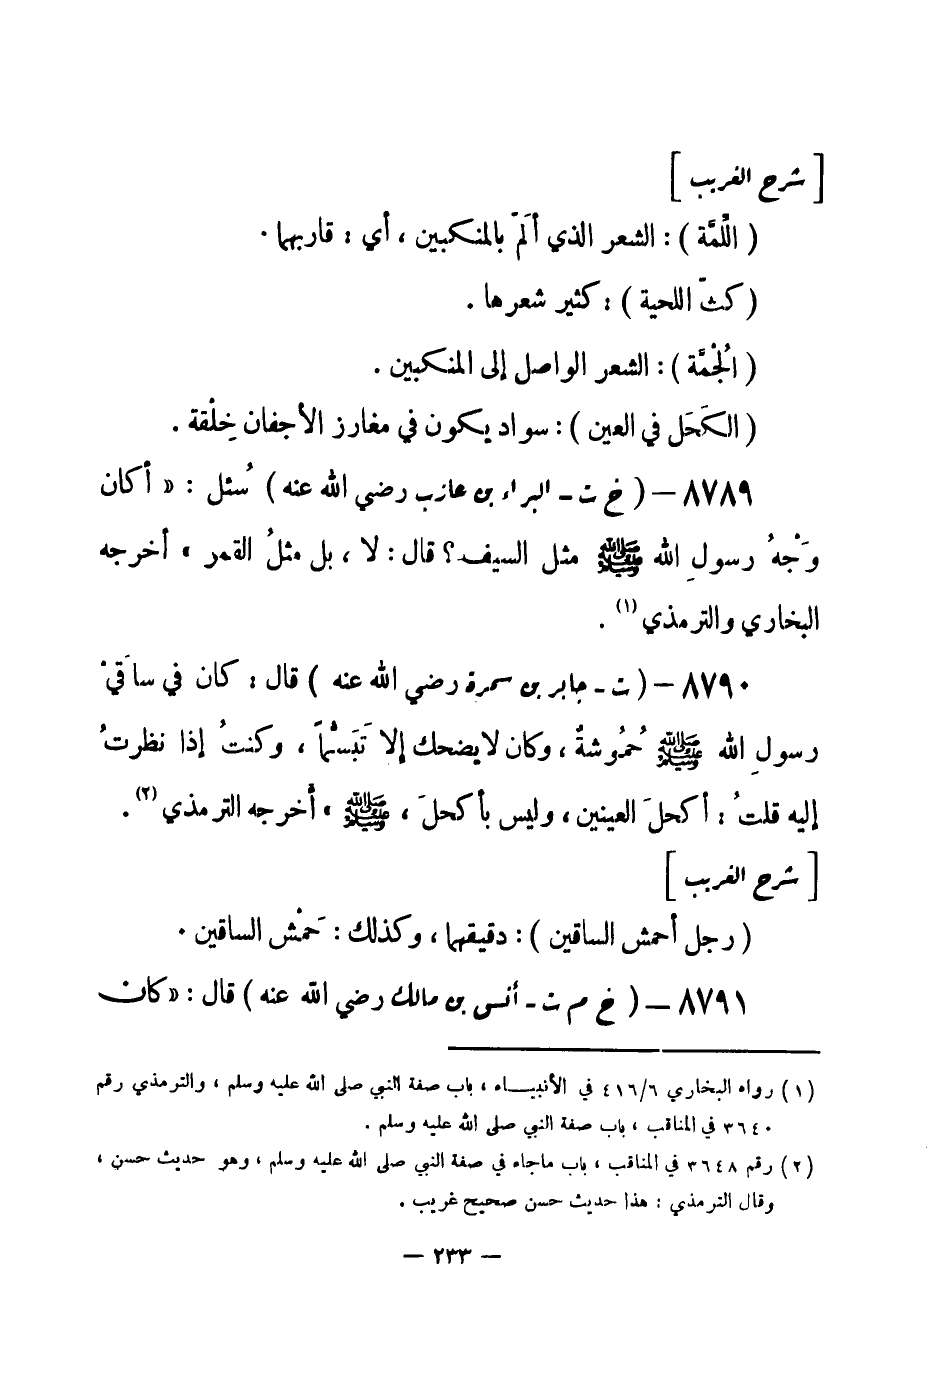 [ شرح الغريب ]
( اللِّمَّة ) : الشعر الذي أَلَمّ بالمنكبين ، أي : قاربهما .
( كثّ اللحية ) : كثير شعرها .
( الجُمَّة ) : الشعر الواصل إلى المنكبين .
( الكَحَل في العين ) : سواد يكون في مغارز الأجفان خِلْقة .
٨٧٨٩ – ( خ ت - البراء بن عازب رضي الله عنه ) سُئل : « أكان
وَجْهُ رسولِ الله ﷺ مثل السيف ؟ قال : لا ، بل مثلُ القمر » أخرجه
البخاري والترمذي (١) .
٨٧٩٠ – ( ت - جابر بن سمرة رضي الله عنه ) قال : كان في ساقَيْ
رسولِ الله ﷺ حُمُوشةٌ ، وكان لا يضحك إلا تَبَسُّماً ، وكنتُ إذا نظرتُ
إليه قلتُ : أكحلَ العينين ، وليس بأكحلَ ، ﷺ » أخرجه الترمذي (٢) .
[ شرح الغريب ]
( رجل أحمش الساقين ) : دقيقهما ، وكذلك : حَمْش الساقين .
٨٧٩١ – ( خ م ت - أنس بن مالك رضي الله عنه ) قال : « كان
(١) رواه البخاري ٤١٦/٦ في الأنبياء ، باب صفة النبي صلى الله عليه وسلم ، والترمذي رقم
٣٦٤٠ في المناقب ، باب صفة النبي صلى الله عليه وسلم .
(٢) رقم ٣٦٤٨ في المناقب ، باب ماجاء في صفة النبي صلى الله عليه وسلم ، وهو حديث حسن ،
وقال الترمذي : هذا حديث حسن صحيح غريب .
– ٢٣٣ –